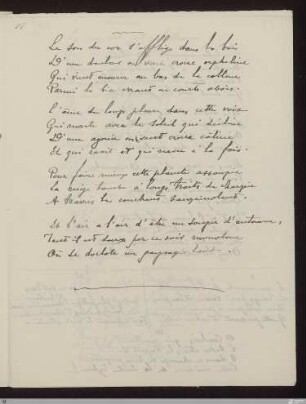 Le son du cor s'afflige dans les bois
D'une douleur on veut croire orpheline
Qui vient mourir au bas de la colline
Parmi la bise errant en courts abois.
L'âme du loup pleure dans cette voix
Qui monte avec le soleil qui décline
D'une agonie on veut croire câline
Et qui ravit et qui navre à la fois.
Pour faire mieux cette plainte assoupie
La neige tombe à longs traits de charpie
A travers le couchant sanguinolent.
Et l'air a l'air d'être un soupir d'automne,
Tant il fait doux par ce soir monotone
Où se dorlote un paysage lent.